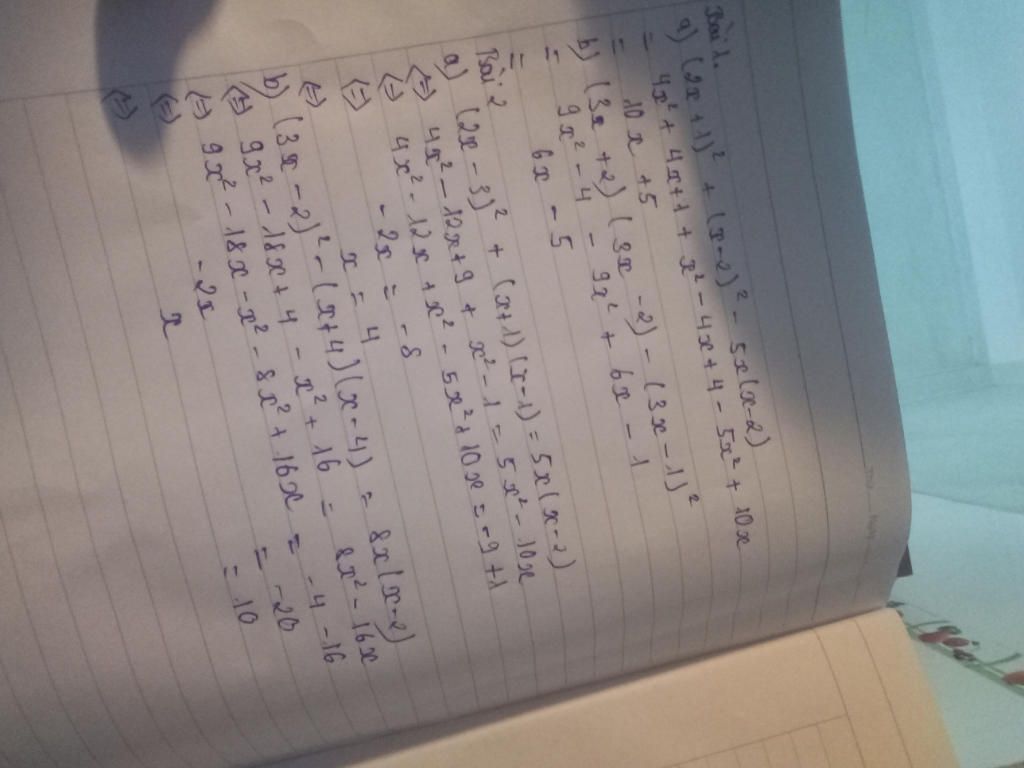 Bài 1.
a) (2x+1)² + (x-2)² - 5x(x-2)
= 4x² + 4x+1 + x² - 4x+4 - 5x² + 10x
= 10x + 5
b) (3x +2) (3x -2) - (3x -1)²
= 9x² - 4 - 9x² + 6x - 1
= 6x - 5
Bài 2
a) (2x - 3)² + (x+1)(x-1) = 5x(x-2)
(=) 4x² - 12x+9 + x² - 1 = 5x² - 10x
(=) 4x² - 12x + x² - 5x² + 10x = -9 +1
(=) - 2x = - 8
(=) x = 4
b) (3x - 2)² - (x+4)(x-4) = 8x(x-2)
(=) 9x² - 18x+4 - x² + 16 = 8x² - 16x
(=) 9x² - 18x - x² - 8x² + 16x = - 4 -16
(=) - 2x = -20
(=) x = 10